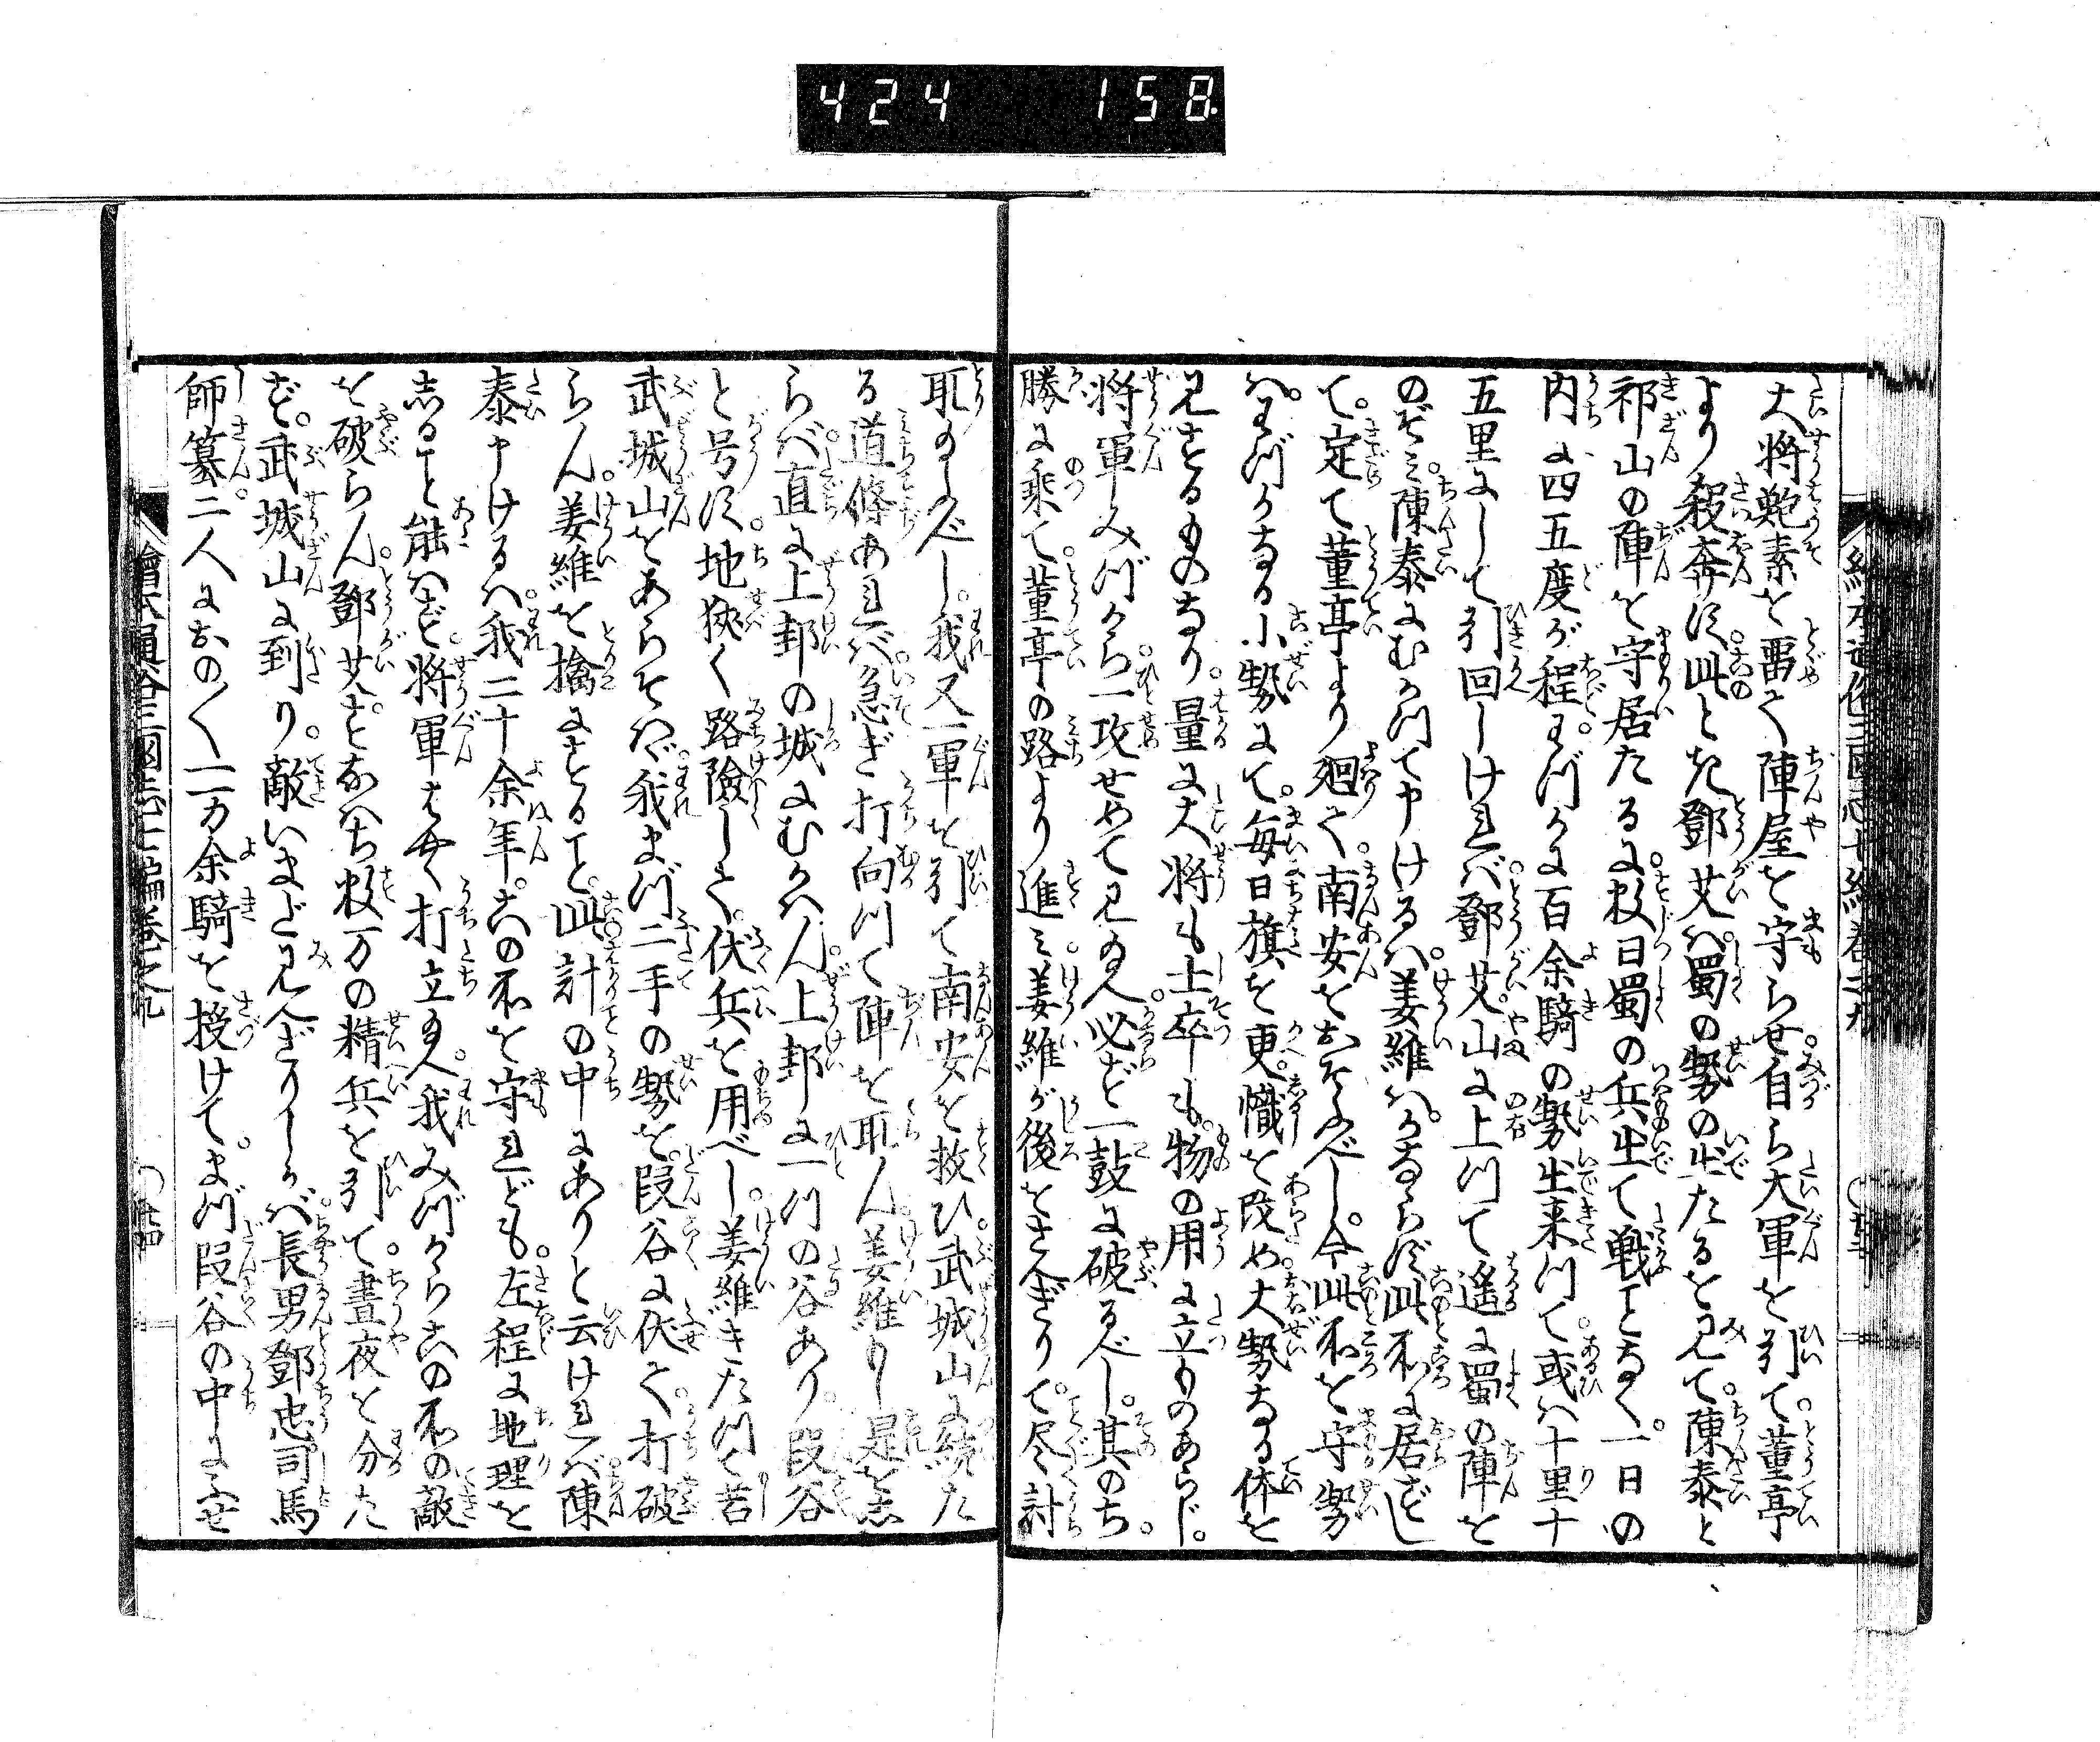 424 158
大将鮑素を畱て陣屋を守らせ自ら大軍を引て。董亭
より殺奔す。此とき鄧艾ハ蜀の勢の出たるを見て。陳泰と
祁山の陣を守居たるに。数日蜀の兵出て戦ことなく。一日の
内に四五度が程。わづかに百余騎の勢出来つて。或ハ十里十
五里にして引回しけれバ。鄧艾山に上つて遙に蜀の陣を
のぞミ。陳泰にむかつて申けるハ。姜維ハかならず此所に居ずし
て。定て董亭より廻て。南安をおそふべし。今此所を守勢
ハ。わづかなる小勢にて。毎日旗を更。幟を改め。大勢なる体を
見するものなり。量に大将も士卒も。物の用に立ものあらじ。
将軍みづから一攻せめて見玉へ。必ず一鼓に破るべし。其のち。
勝に乗て。董亭の路より進ミ。姜維が後をさへぎりて。尽く討
取玉ふべし。我又一軍を引て南安を救ひ。武城山に続た
る道條あれバ。急ぎ打向つて陣を取ん。姜維もし是をし
らバ。直に上邽の城にむかハん。上邽に一つの谷あり。段谷
と号す。地狭く路険しくて。伏兵を用べし。姜維きたつて若
武城山をあらそハヾ。我まづ二手の勢を段谷に伏て。打破
らん。姜維を擒にすること。此計の中にありと云けれバ。陳
泰申けるハ。我二十余年。この所を守れども。左程に地理を
しること能ハず。将軍はやく打立玉へ。我みづからこの所の敵
を破らん。鄧艾すなハち数万の精兵を引て。晝夜を分た
ず。武城山に到り。敵いまだ見へざりしかバ。長男鄧忠司馬
師纂。二人におの〱一万余騎を授けて。まづ段谷の中にふせ
繪本通俗三國志七編巻之九